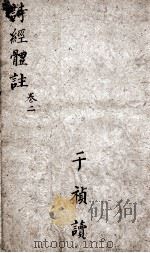 詩經體註
卷二
于禎讀
mtoou.info